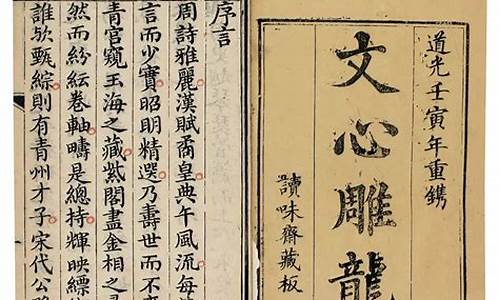 道光壬寅年重鐫
文心雕龍
讀味齋藏板
序言
周詩雅麗漢賦矞皇典午風流每
言而少實昭明精選乃壽世而不
青宮窺玉海之藏紫閣盡金相之
然而紛紜卷軸疇是總持輝映縹
誰欤甄綜則有青州才子宋代公